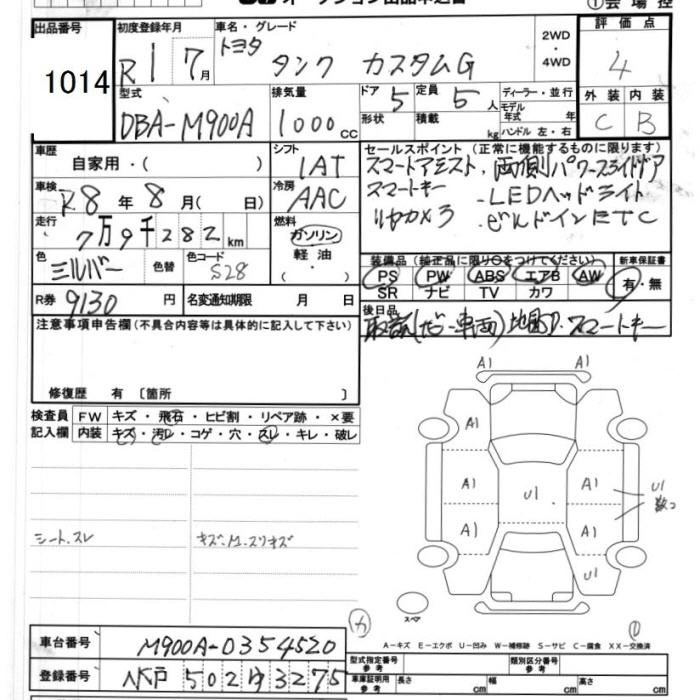 オークション出品申込書
①会場控
出品番号 1014
初度登録年月 R1 7月
車名・グレード トヨタ タンク カスタムG
2WD・4WD
評価点 4
外装 C 内装 B
型式 DBA-M900A
排気量 1000cc
ドア 5 形状
定員 5人 積載 kg
ディーラー・並行
モデル年式 年式
ハンドル 左・右
車歴 自家用・( )
シフト 1AT
車検 R8年8月( 日)
冷房 AAC
走行 7万9千282km
燃料 ガソリン 軽油・( )
色 シルバー 色替 色コード S28
R券 9130円 名変通知期限 月 日
セールスポイント (正常に機能するものに限ります)
スマートアシスト、両側パワースライドドア
スマートキー ・LEDヘッドライト
リヤカメラ ・ビルドインETC
装備品(純正品に限り○をつけてください) 新車保証書
PS PW ABS エアB AW 有・無
SR ナビ TV カワ
後日品
取説(ナビ・車両)地図D.スマートキー
注意事項申告欄(不具合内容等は具体的に記入して下さい)
修復歴 有〔箇所 〕
検査員記入欄 FW キズ・飛石・ヒビ割・リペア跡・×要
内装 キズ・汚レ・コゲ・穴・スレ・キレ・破レ
シート.スレ
キズ.M.スリキズ
A1 A1
A1
A1 U1 A1 U1
数コ
A1 A1
U1
スペア
カ
A-キズ E-エクボ U-凹み W-補修跡 S-サビ C-腐食 XX-交換済
車台番号 M900A-0354520
型式指定番号 参考 類別区分番号 参考
登録番号 502 3275
車庫証明用 参考 長さ cm 幅 cm 高さ cm